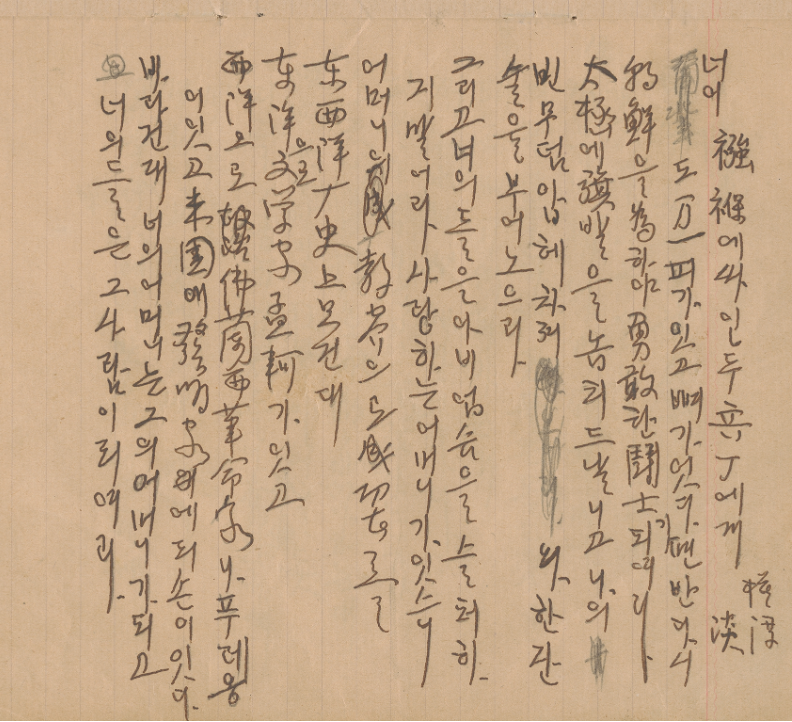 너이 襁褓에싸인두兵丁에게
模 淡
도万一피가잇고뼈가잇다면반다시
朝鮮을爲하야勇敢한鬪士가되여라
太極에旗발을놉피드날니고나의
빈무덤압헤차저와한잔
술을부어노으라
그리고너의들은아비업슴을슬퍼하
지말어라사랑하는어머니가잇스니
어머니의敎養으로成功者를
东西洋歷史上보건대
东洋으로文学家孟軻가잇고
西洋으로佛蘭西革命家나푸레옹
이잇고米国에發明家에되손이잇다
바라건대너의어머니는그의어머니가되고
너의들은그사람이되여라